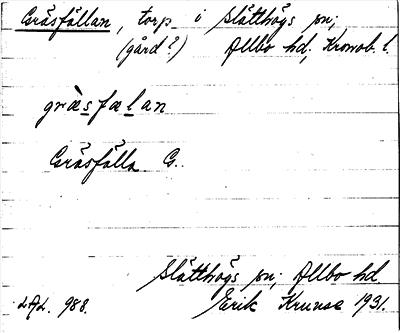 Gräsfällan, torp i Slätthögs sn;
(gård?) Allbo hd, Kronob. l.
græ̀sfælan
Gräsfälla G.
Slätthögs sn; Allbo hd.
LAL. 988. Erik Kruuse 1931.